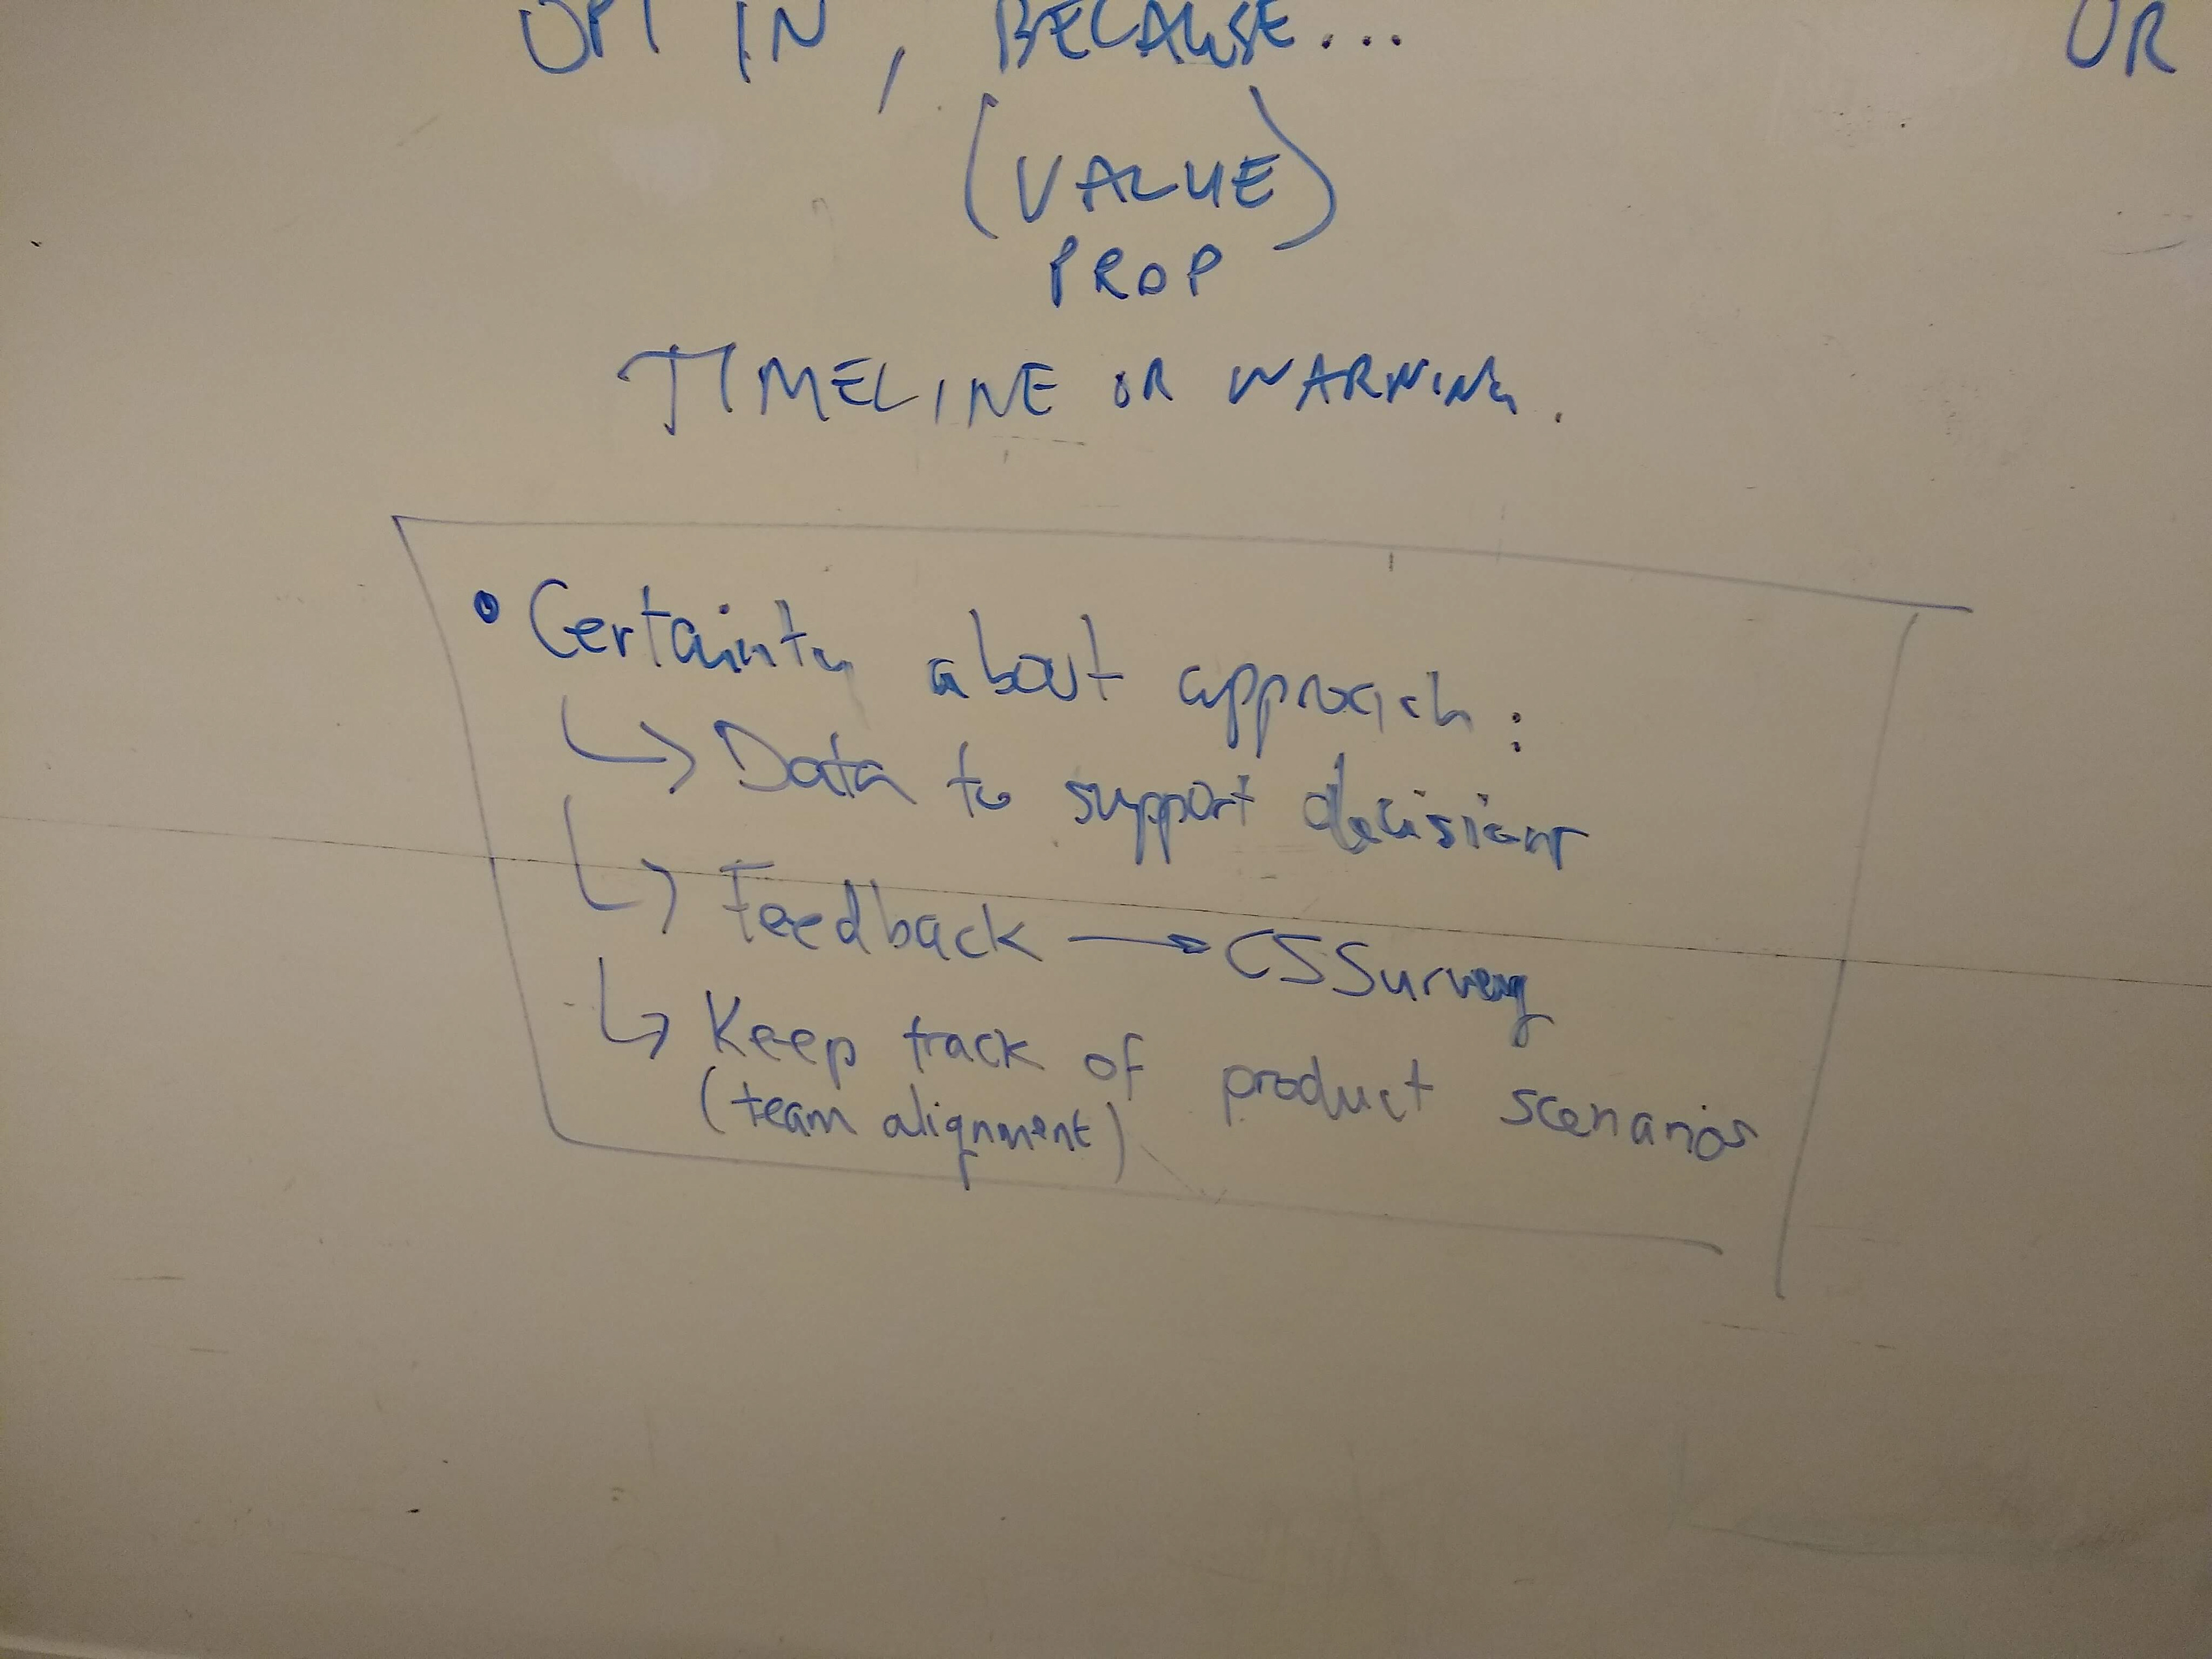 OPT IN, BECAUSE... OR
(VALUE)
PROP
TIMELINE OR WARNING.
• Certainty about approach:
↳ Data to support decisions
↳ Feedback → CSSurvey
↳ Keep track of product scenarios
(team alignment)